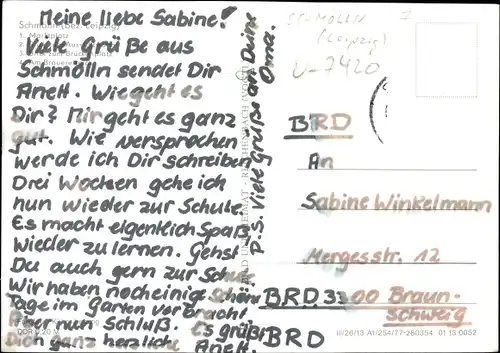 Schmölln (Bez. Leipzig)
1. Marktplatz
Meine liebe Sabine!
Viele Grüße aus
Schmölln sendet Dir
Anett. Wie geht es
Dir? Mir geht es ganz
gut. Wie versprochen
werde ich Dir schreiben.
Drei Wochen gehe ich
nun wieder zur Schule.
Es macht eigentlich Spaß
wieder zu lernen. Gehst
Du auch gern zur Schule
Wir haben noch einige schöne
Tage im Garten verbracht
Aber nun Schluß. Es grüßt
Dich ganz herzlich Anett.
P.S. Viele Grüße an Deine
Oma.
BILD UND HEIMAT REICHENBACH (VOGTL)
SCHMÖLLN
(Leipzig)
U-7420
BRD
An
Sabine Winkelmann
Mergesstr. 12
BRD 3300 Braun-
schweig
BRD
III/26/13 A1/254/77-260354 01 13 0052
DDR 0,20 M